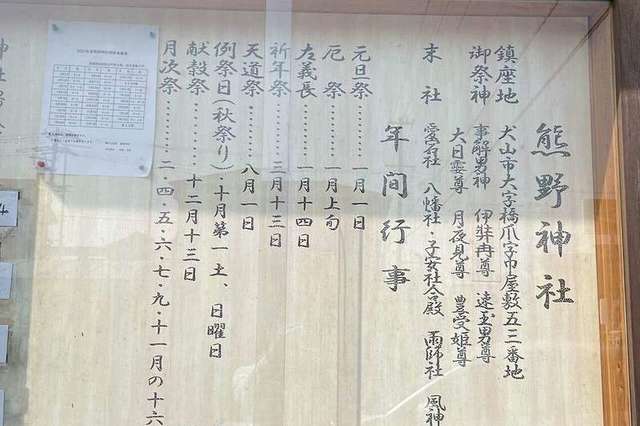 熊野神社
鎮座地 犬山市大字橋爪字巾屋敷五三番地
御祭神 事解男神 伊弉冉尊 速玉男尊
大日孁尊 月夜見尊 豊受姫尊
末社 愛宕社 八幡社・子安社合殿 雨師社 風神
年間行事
元旦祭………一月一日
厄祭………一月上旬
左義長………一月十四日
祈年祭………三月十三日
天道祭………八月一日
例祭日(秋祭り)・十月第一土、日曜日
献穀祭………十二月十三日
月次祭………二・四・五・六・七・九・十一月の十六